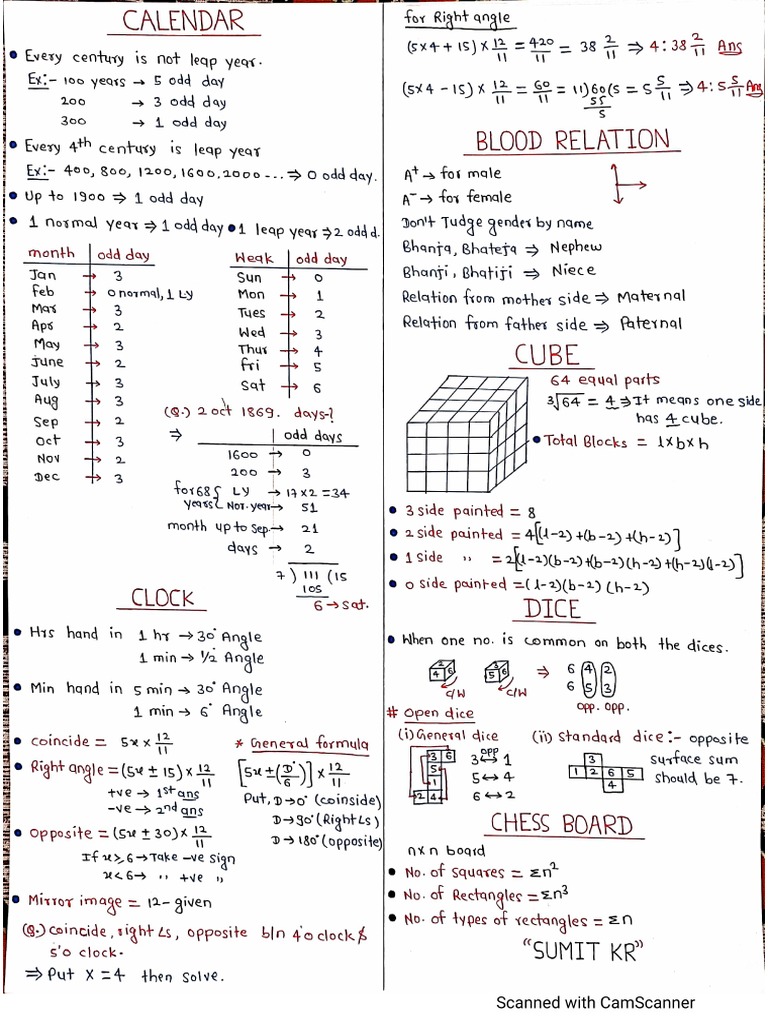 CALENDAR
• Every century is not leap year.
Ex:- 100 years → 5 odd day
200 → 3 odd day
300 → 1 odd day
• Every 4th century is leap year
Ex:- 400, 800, 1200, 1600, 2000 --- ⇒ 0 odd day.
• Up to 1900 ⇒ 1 odd day
• 1 normal year ⇒ 1 odd day • 1 leap year ⇒ 2 odd d.
month | odd day
Jan → 3
feb → 0 normal, 1 LY
Mar → 3
Apr → 2
May → 3
June → 2
July → 3
Aug → 3
Sep → 2
Oct → 3
Nov → 2
Dec → 3
Weak | odd day
Sun → 0
Mon → 1
Tues → 2
Wed → 3
Thur → 4
fri → 5
Sat → 6
(Q.) 2 oct 1869. days-?
⇒ | odd days
1600 → 0
200 → 3
for 68 years { LY → 17×2 = 34
Nor. year → 51
month up to Sep. → 21
days → 2
7 ) 111 ( 15
105
6 → sat.
CLOCK
• Hrs hand in 1 hr → 30° Angle
1 min → 1/2° Angle
• Min hand in 5 min → 30° Angle
1 min → 6° Angle
• coincide = 5x × 12/11
• Right angle = (5x ± 15) × 12/11
+ve → 1st ans
-ve → 2nd ans
• Opposite = (5x ± 30) × 12/11
If x ⩾ 6 → Take -ve sign
x < 6 → " +ve "
• Mirror image = 12 - given
* General formula
[5x ± (D°/6)] × 12/11
Put, D → 0° (coinside)
D → 90° (Right ∠s)
D → 180° (opposite)
(Q.) coincide, right ∠s, opposite b/n 4'o clock &
5'o clock.
⇒ Put X = 4 then solve.
for Right angle
(5×4 + 15) × 12/11 = 420/11 = 38 2/11 ⇒ 4:38 2/11 Ans
(5×4 - 15) × 12/11 = 60/11 = 11)60(5 = 5 5/11 ⇒ 4:5 5/11 Ans
55
5
BLOOD RELATION
A⁺ → for male
A⁻ → for female
Don't Judge gender by name
Bhanja, Bhateja ⇒ Nephew
Bhanji, Bhatiji ⇒ Niece
Relation from mother side ⇒ Maternal
Relation from father side ⇒ Paternal
CUBE
64 equal parts
3√64 = 4 ⇒ It means one side
has 4 cube.
• Total Blocks = l×b×h
• 3 side painted = 8
• 2 side painted = 4[(l-2)+(b-2)+(h-2)]
• 1 side " = 2[(l-2)(b-2)+(b-2)(h-2)+(h-2)(l-2)]
• 0 side painted = (l-2)(b-2)(h-2)
DICE
• When one no. is common on both the dices.
2 4 6 C/W
3 5 6 C/W
⇒ 6 4 2
6 5 3
opp. opp.
# Open dice
(i) General dice
3 6
5
1
2 4
3 opp ↔ 1
5 ↔ 4
6 ↔ 2
(ii) Standard dice :- opposite
surface sum
should be 7.
3
1 2 6 5
4
CHESS BOARD
n×n board
• No. of squares = Σn²
• No. of Rectangles = Σn³
• No. of types of rectangles = Σn
"SUMIT KR"
Scanned with CamScanner